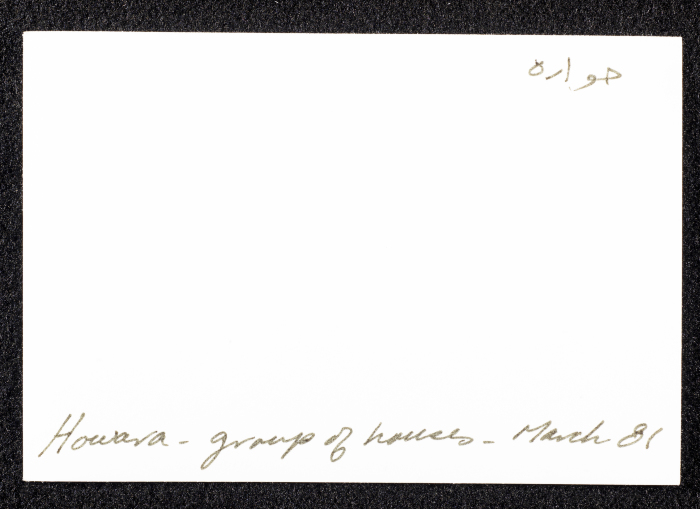 حواره
Howara - group of houses - March 81